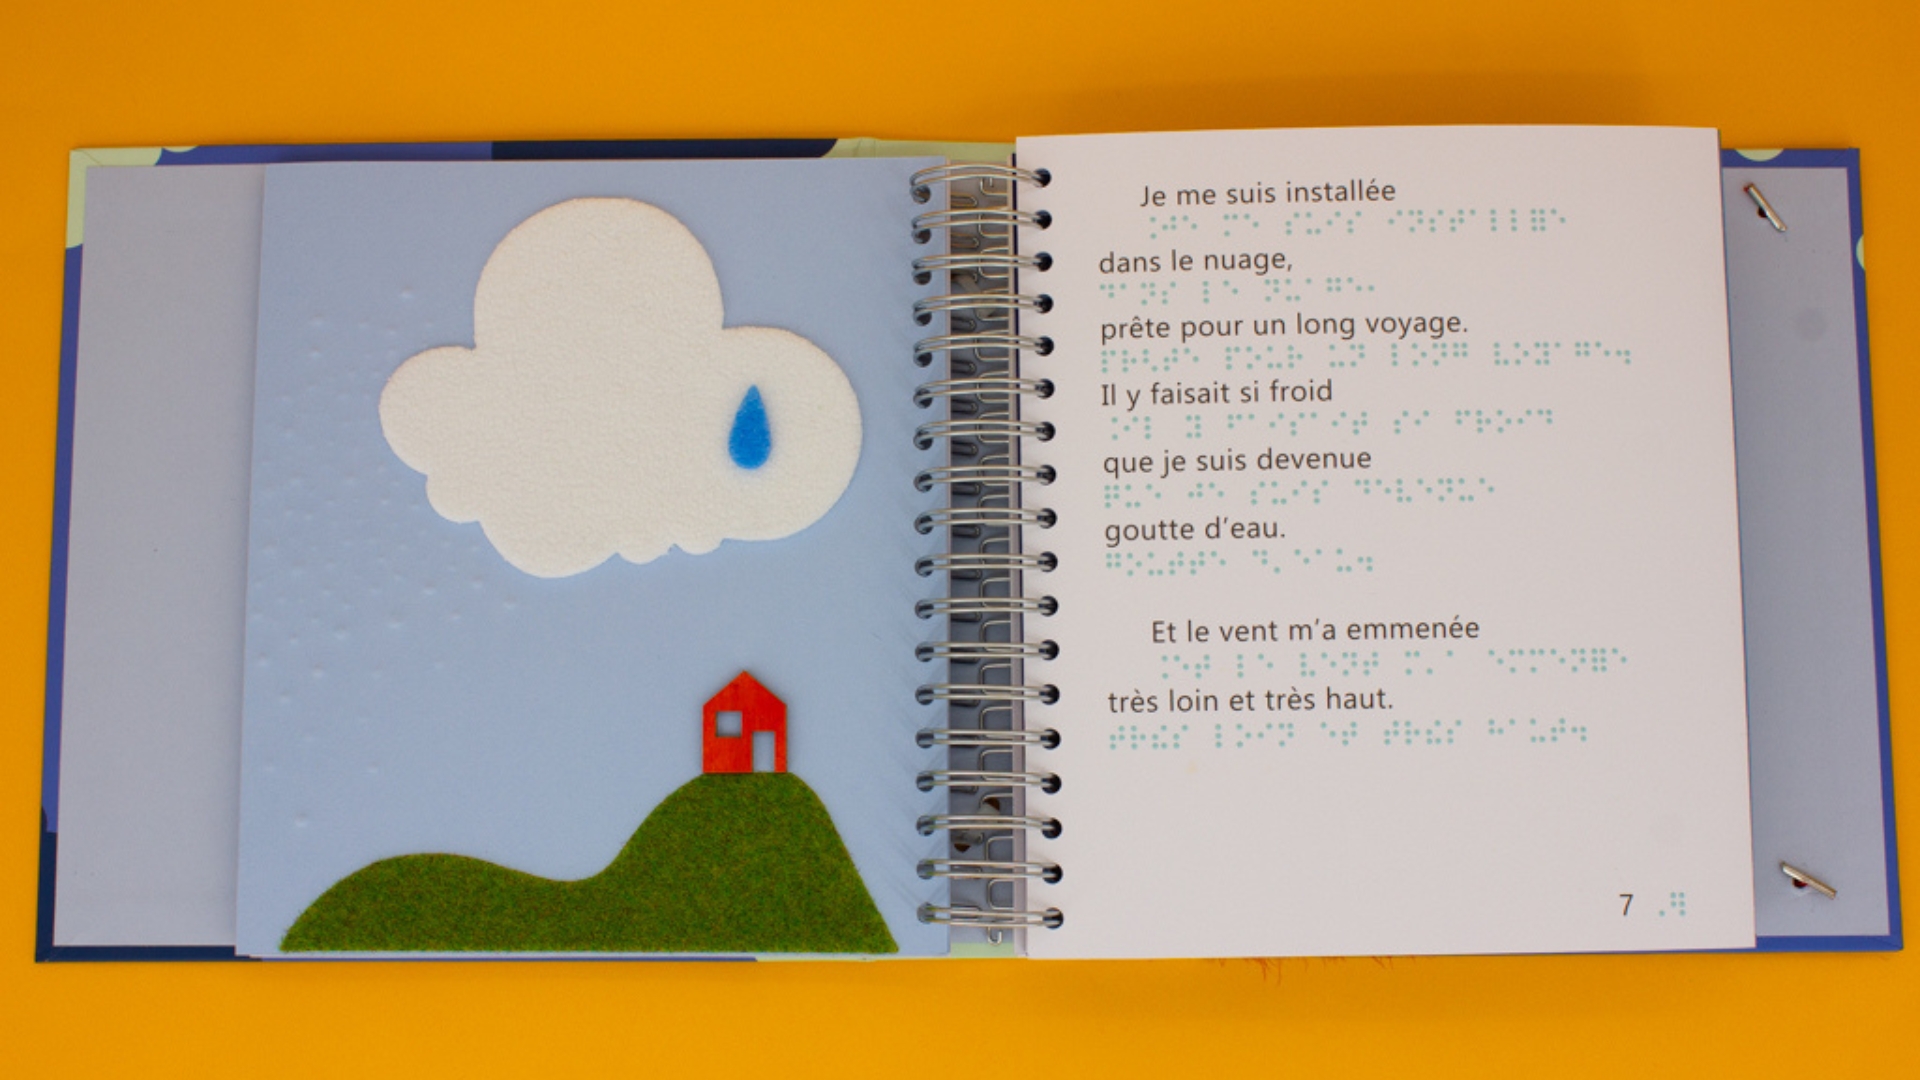 Je me suis installée
dans le nuage,
prête pour un long voyage.
Il y faisait si froid
que je suis devenue
goutte d’eau.
Et le vent m’a emmenée
très loin et très haut.
7